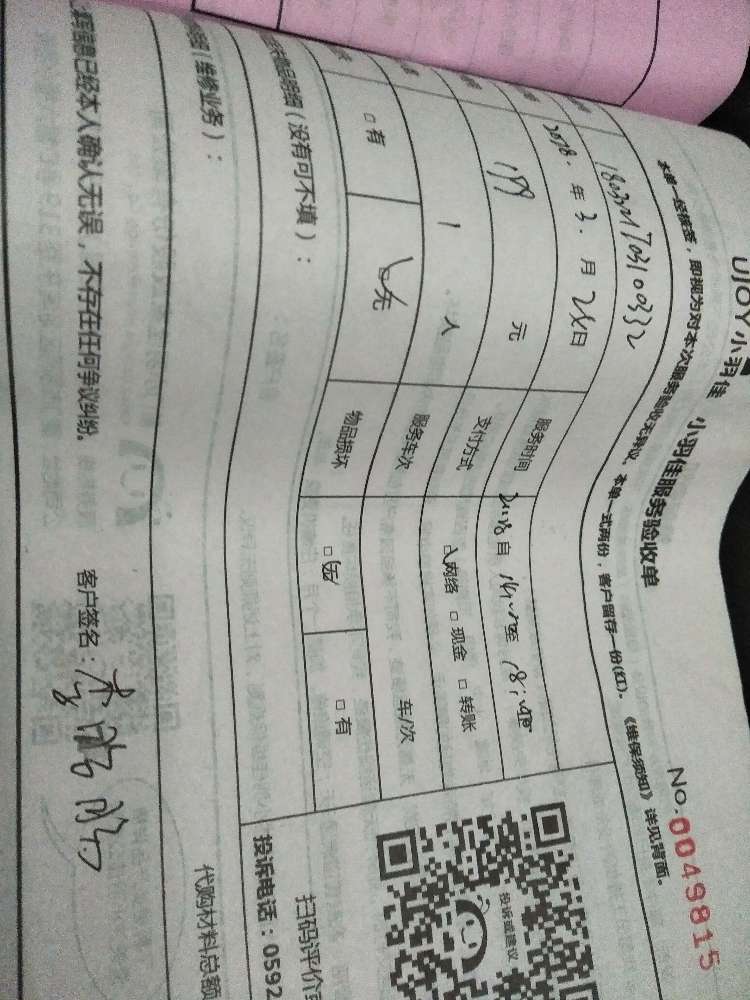 UJOY小羽佳 小羽佳服务验收单
NO:0049815
本单一经接签,即视为对本次服务验收无异议。本单一式两份,客户留存一份(红)。《维保须知》详见背面。
2018.年3.月 日 服务时间 自 至
199 元 支付方式 网络 □ 现金 □ 转账
1 人 服务车次 车/次
□有 □无 物品损坏 □无 □有
物品明细(没有可不填):
(维修业务):
代购材料总额
信息已经本人确认无误,不存在任何争议纠纷。 客户签名:
投诉或建议
扫码评价
投诉电话:0592